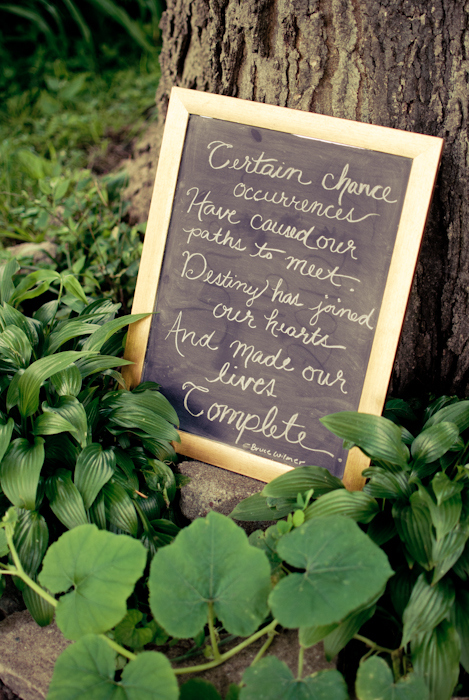 Certain chance
occurrences
Have caused our
paths to meet.
Destiny has joined
our hearts
And made our
lives
Complete
-Bruce Wilmer